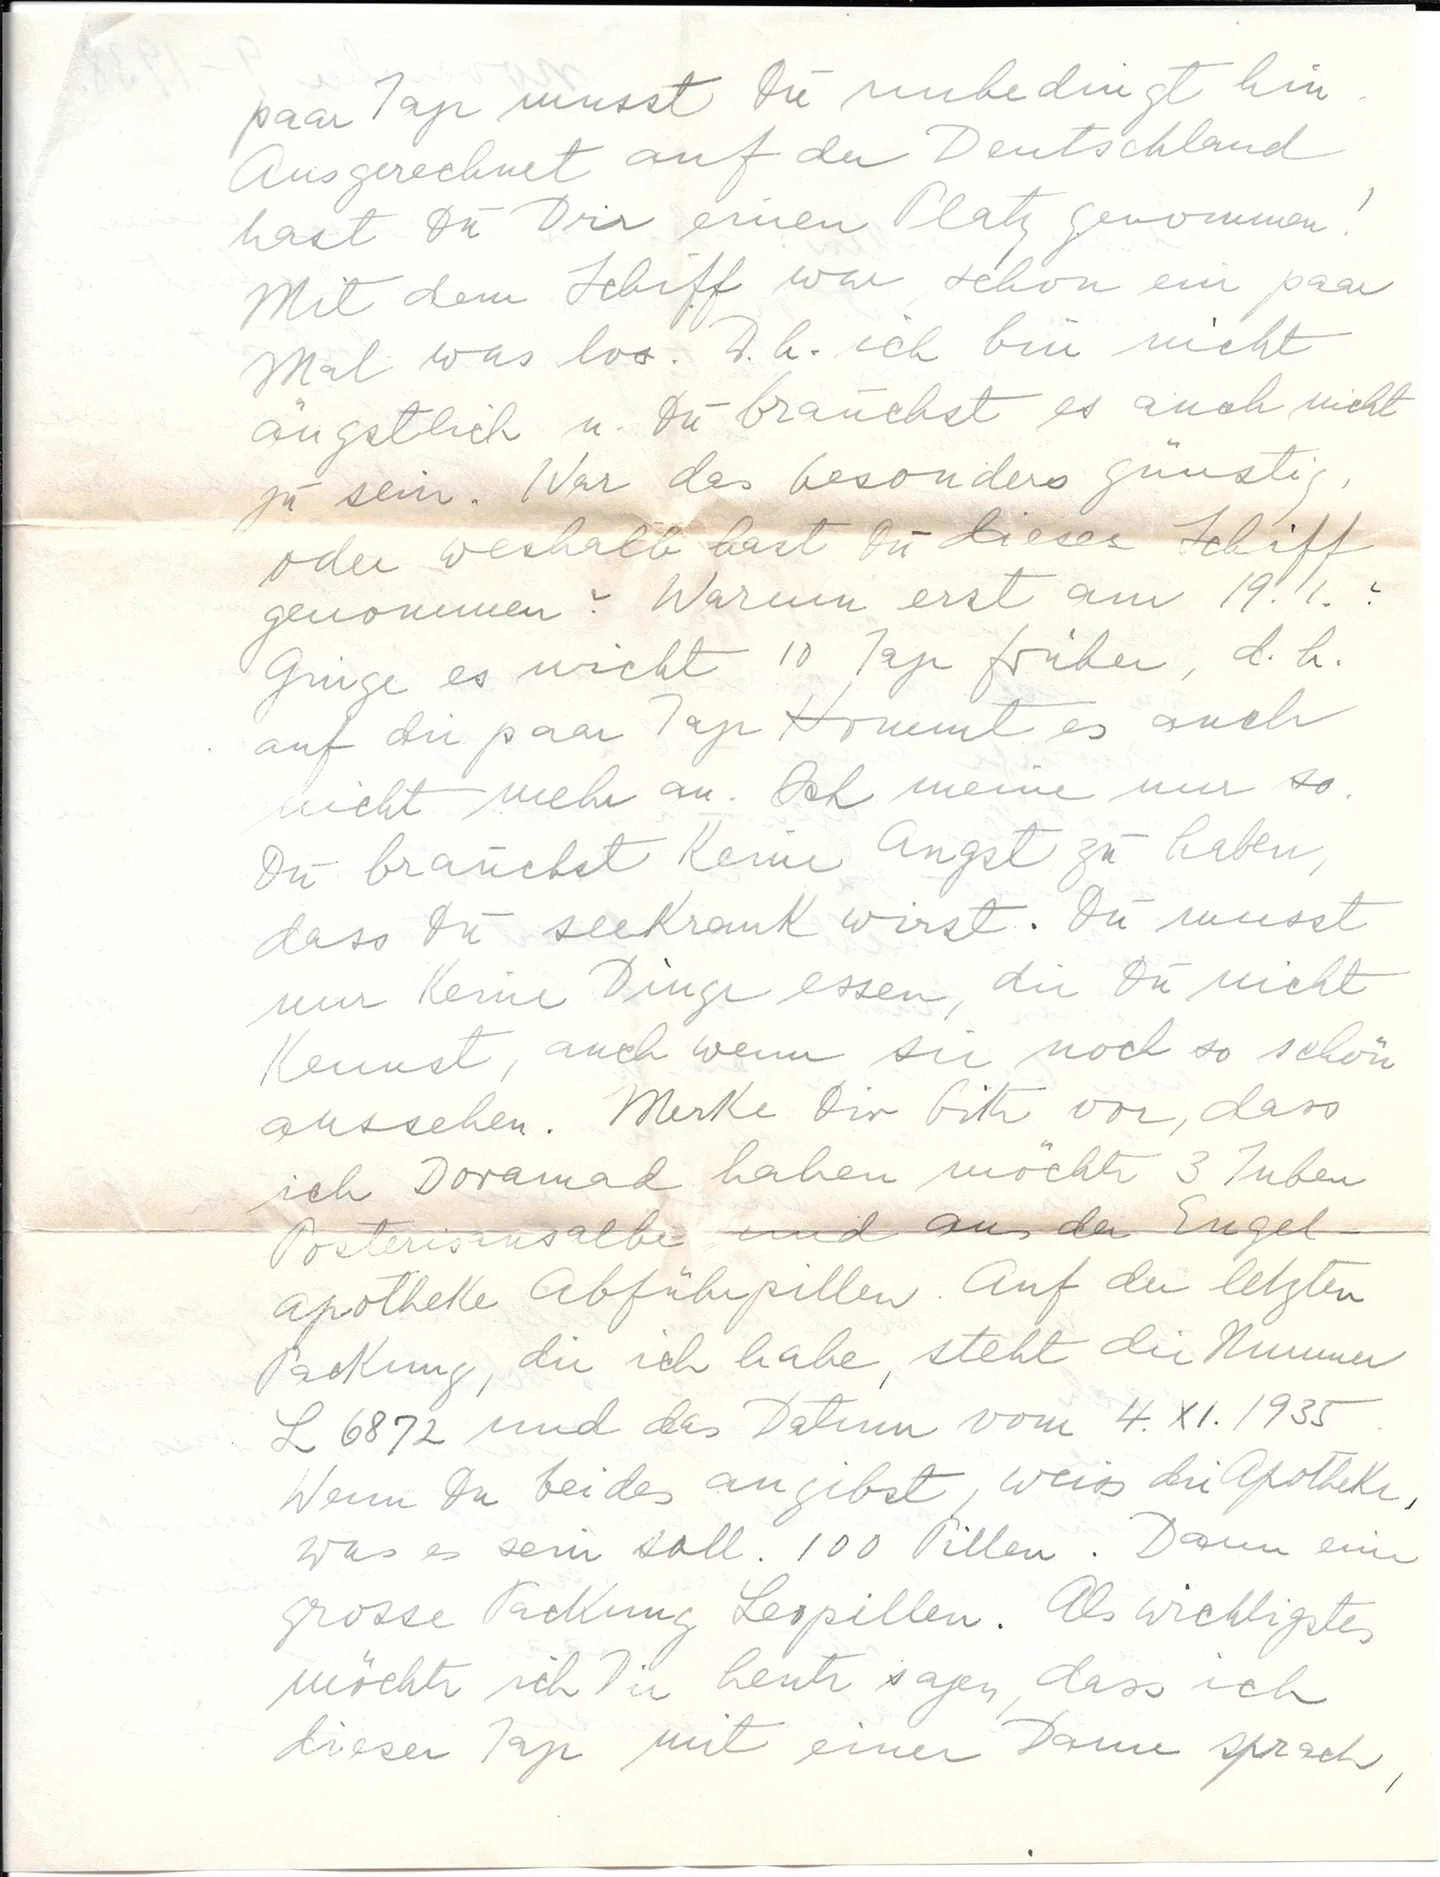 paar Tage musst Du unbedingt hin.
Ausgerechnet auf der Deutschland
hast Du Dir einen Platz genommen!
Mit dem Schiff war schon ein paar
Mal was los. D.h. ich bin nicht
ängstlich u. Du brauchst es auch nicht
zu sein. War das besonders günstig,
oder weshalb hast Du dieses Schiff
genommen? Warum erst am 19.1.?
Ginge es nicht 10 Tage früher, d.h.
auf die paar Tage kommt es auch
nicht mehr an. Ich meine nur so.
Du brauchst keine Angst zu haben,
dass Du seekrank wirst. Du musst
nur keine Dinge essen, die Du nicht
kennst, auch wenn sie noch so schön
aussehen. Merke Dir bitte vor, dass
ich Doramad haben möchte 3 Tuben
Posterisansalbe und aus der Engel-
apotheke Abführpillen. Auf der letzten
Packung, die ich habe, steht die Nummer
L 6872 und das Datum vom 4. XI. 1935
Wenn Du beides angibst, weiss die Apotheke,
was es sein soll. 100 Pillen. Dann eine
grosse Packung Leopillen. Als wichtigstes
möchte ich Dir heute sagen, dass ich
dieser Tage mit einer Dame sprach,